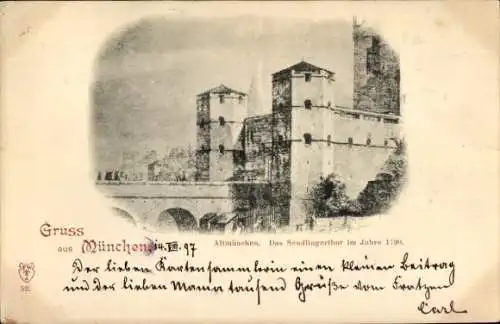 Gruss
aus München
14. VII. 97
Altmünchen. Das Sendlingerthor im Jahre 1790.
Der lieben Kartensammlerin einen kleinen Beitrag
und der lieben Mama tausend Grüße vom Fratzen
Carl